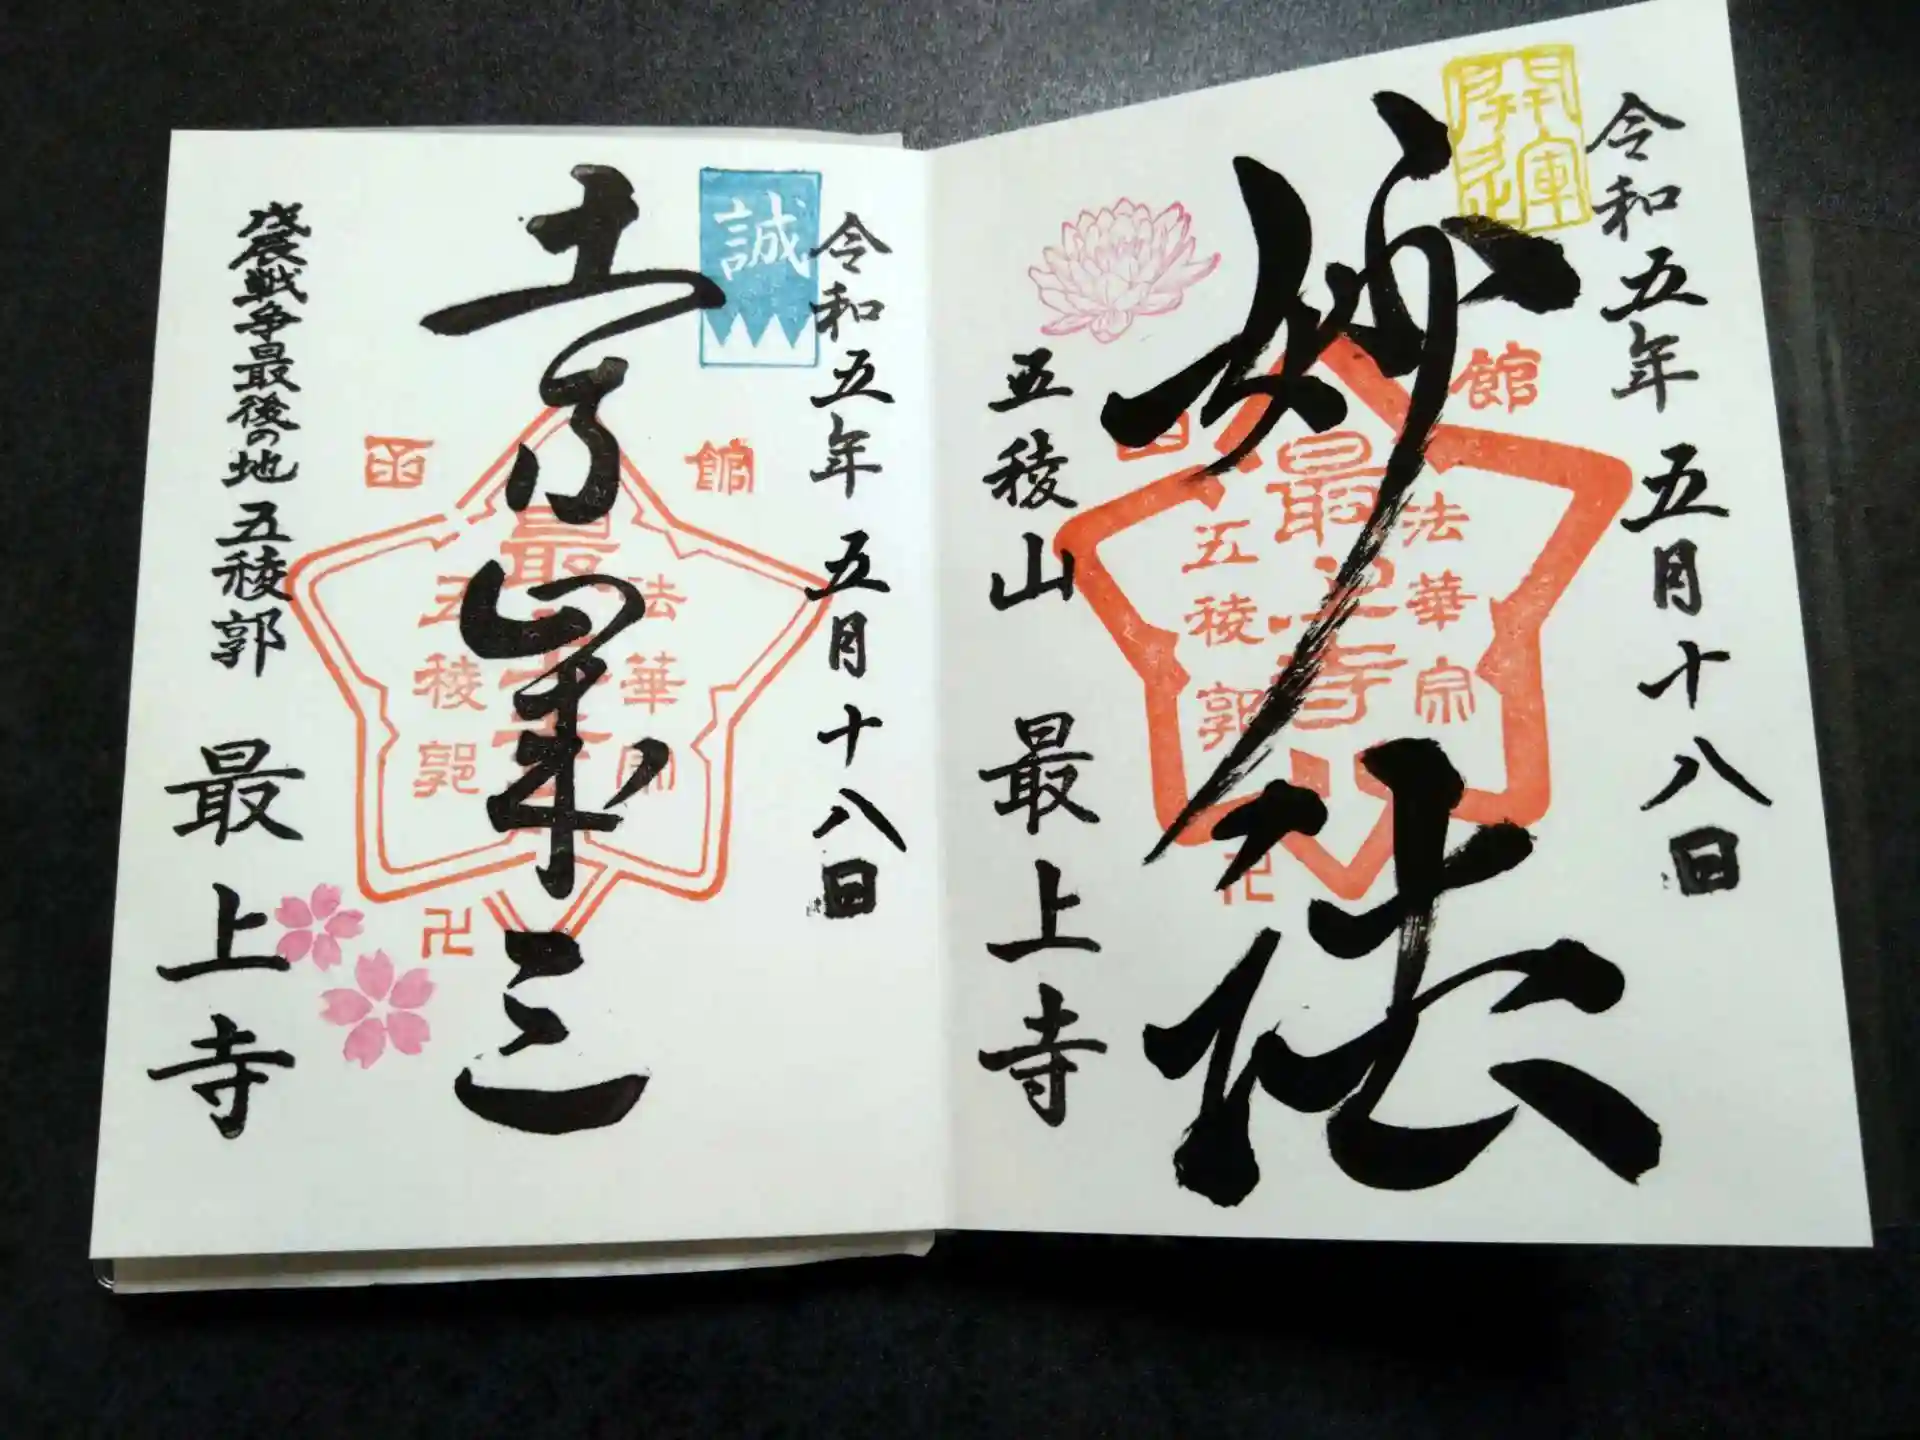 開運
令和五年 五月十八日
妙法
函館
法華宗
最上寺
五稜郭
卍
五稜山 最上寺
誠
令和五年 五月十八日
土方歳三
函館
法華宗
最上寺
五稜郭
卍
戊辰戦争最後の地 五稜郭 最上寺